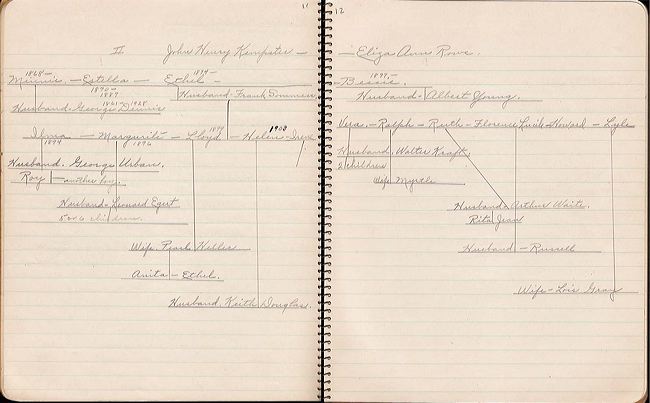 11
II John Henry Kempster —
1868-
Minnie — Estella — Ethel —
1894-
1870-
1889
Husband-Frank
1861-1928
Husband-George Dennis
Ilma — Margurite — Lloyd — Helen-Irene
1894
1896
1908
Husband. George Urban.
Roy — another boy.
Husband-Leonard Egert
5 or 6 children.
Wife. Pearl
Anita — Ethel.
Husband. Keith Douglas.
12
— Eliza Ann Rowe.
1877-
Bessie.
Husband-Albert Young.
Vera. — Ralph — Ruth — Florence Lucile-Howard — Lyle
Husband. Walter Kraft.
2 children
Wife Myrtle
Husband-Arthur Waite.
Rita Jean
Husband — Russell
Wife-Lois Gray